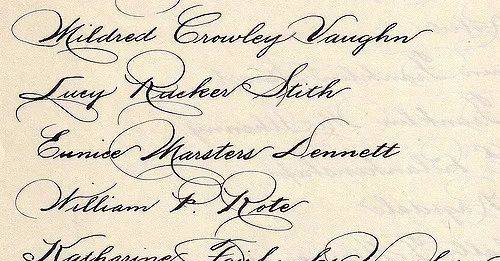 Mildred Crowley Vaughn
Lucy Racker Stith
Eunice Marsters Dennett
William P. Rote
Katharine